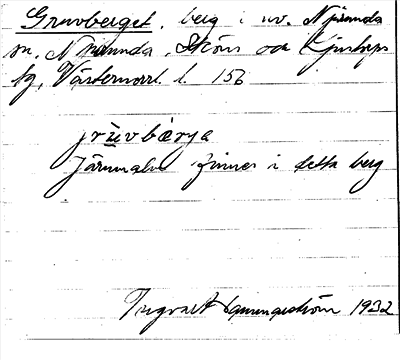 Gruvberget, berg i nv. Njurunda
sn, Njurunda, Sköns och Ljustorps
tg, Västernorrl. l. 156
Järnmalm finnes i detta berg
Ingvar 1932